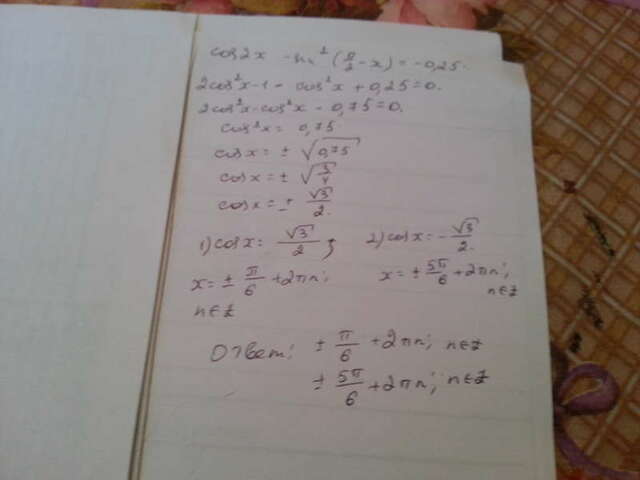 cos2x - sin²(π/2 - x) = -0,25.
2cos²x - 1 - cos²x + 0,25 = 0.
2cos²x - cos²x - 0,75 = 0.
cos²x = 0,75.
cosx = ± √0,75
cosx = ± √(3/4)
cosx = ± √3/2.
1) cosx = √3/2; 2) cosx = -√3/2.
x = ± π/6 + 2πn; x = ± 5π/6 + 2πn;
n∈Z n∈Z
Ответ: ± π/6 + 2πn; n∈Z
± 5π/6 + 2πn; n∈Z